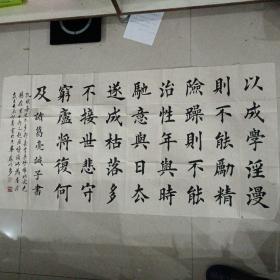 以成學淫漫
則不能勵精
險躁則不能
治性年與時
馳意與日去
遂成枯落多
不接世悲守
窮廬將復何
及諸葛亮誡子書